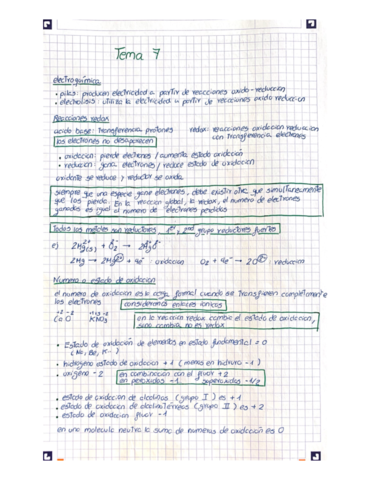 Tema 7
electroquímica
• pilas: producen electricidad a partir de reacciones oxido-reducción
• electrolisis: utiliza la electricidad a partir de reacciones oxido reducción
Reacciones redox
acido base: transferencia protones redox: reacciones oxidación reducción
con transferencia electrones
los electrones no desaparecen
• oxidacion: pierde electrones / aumenta estado oxidación
• reducción: gana electrones / reduce estado de oxidación
oxidante se reduce y reductor se oxida
siempre que una especie gane electrones, debe existir otra que simultaneamente
que los pierda. En la reacción global, la redox, el numero de electrones
ganados es igual al numero de electrones perdidos
Todos los metales son reductores 1er y 2nd grupo reductores fuertes
oxidación
reducción
Numero o estado de oxidacion
el numero de oxidacion es la carga formal cuando se transfieren completamente
los electrones
consideramos enlaces ionicos
+2 -2 +1 +5 -2
CaO KNO3
en la reaccion redox cambia el estado de oxidacion,
sino cambia no es redox
• Estado de oxidación de elementos en estado fundamental = 0
• hidrogeno estado de oxidacion +1 (menos en hidruro -1)
• oxigeno -2
en combinacion con el fluor +2
en peroxidos -1 superoxidos -1/2
• estado de oxidacion de alcalinos (grupo I) es +1
• estado de oxidacion de alcalinotérreos (grupo II) es +2
• estado de oxidacion fluor -1
en una molecula neutra la suma de numeros de oxidacion es 0